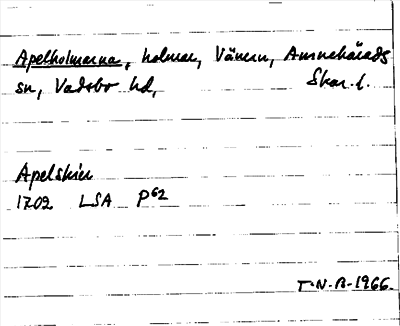 Apelholmarna, holmar, Vänern, Amnehärads
sn, Vadsbo hd, Skar. l.
Apelskier
1702 LSA P62
T-N-B-1966.